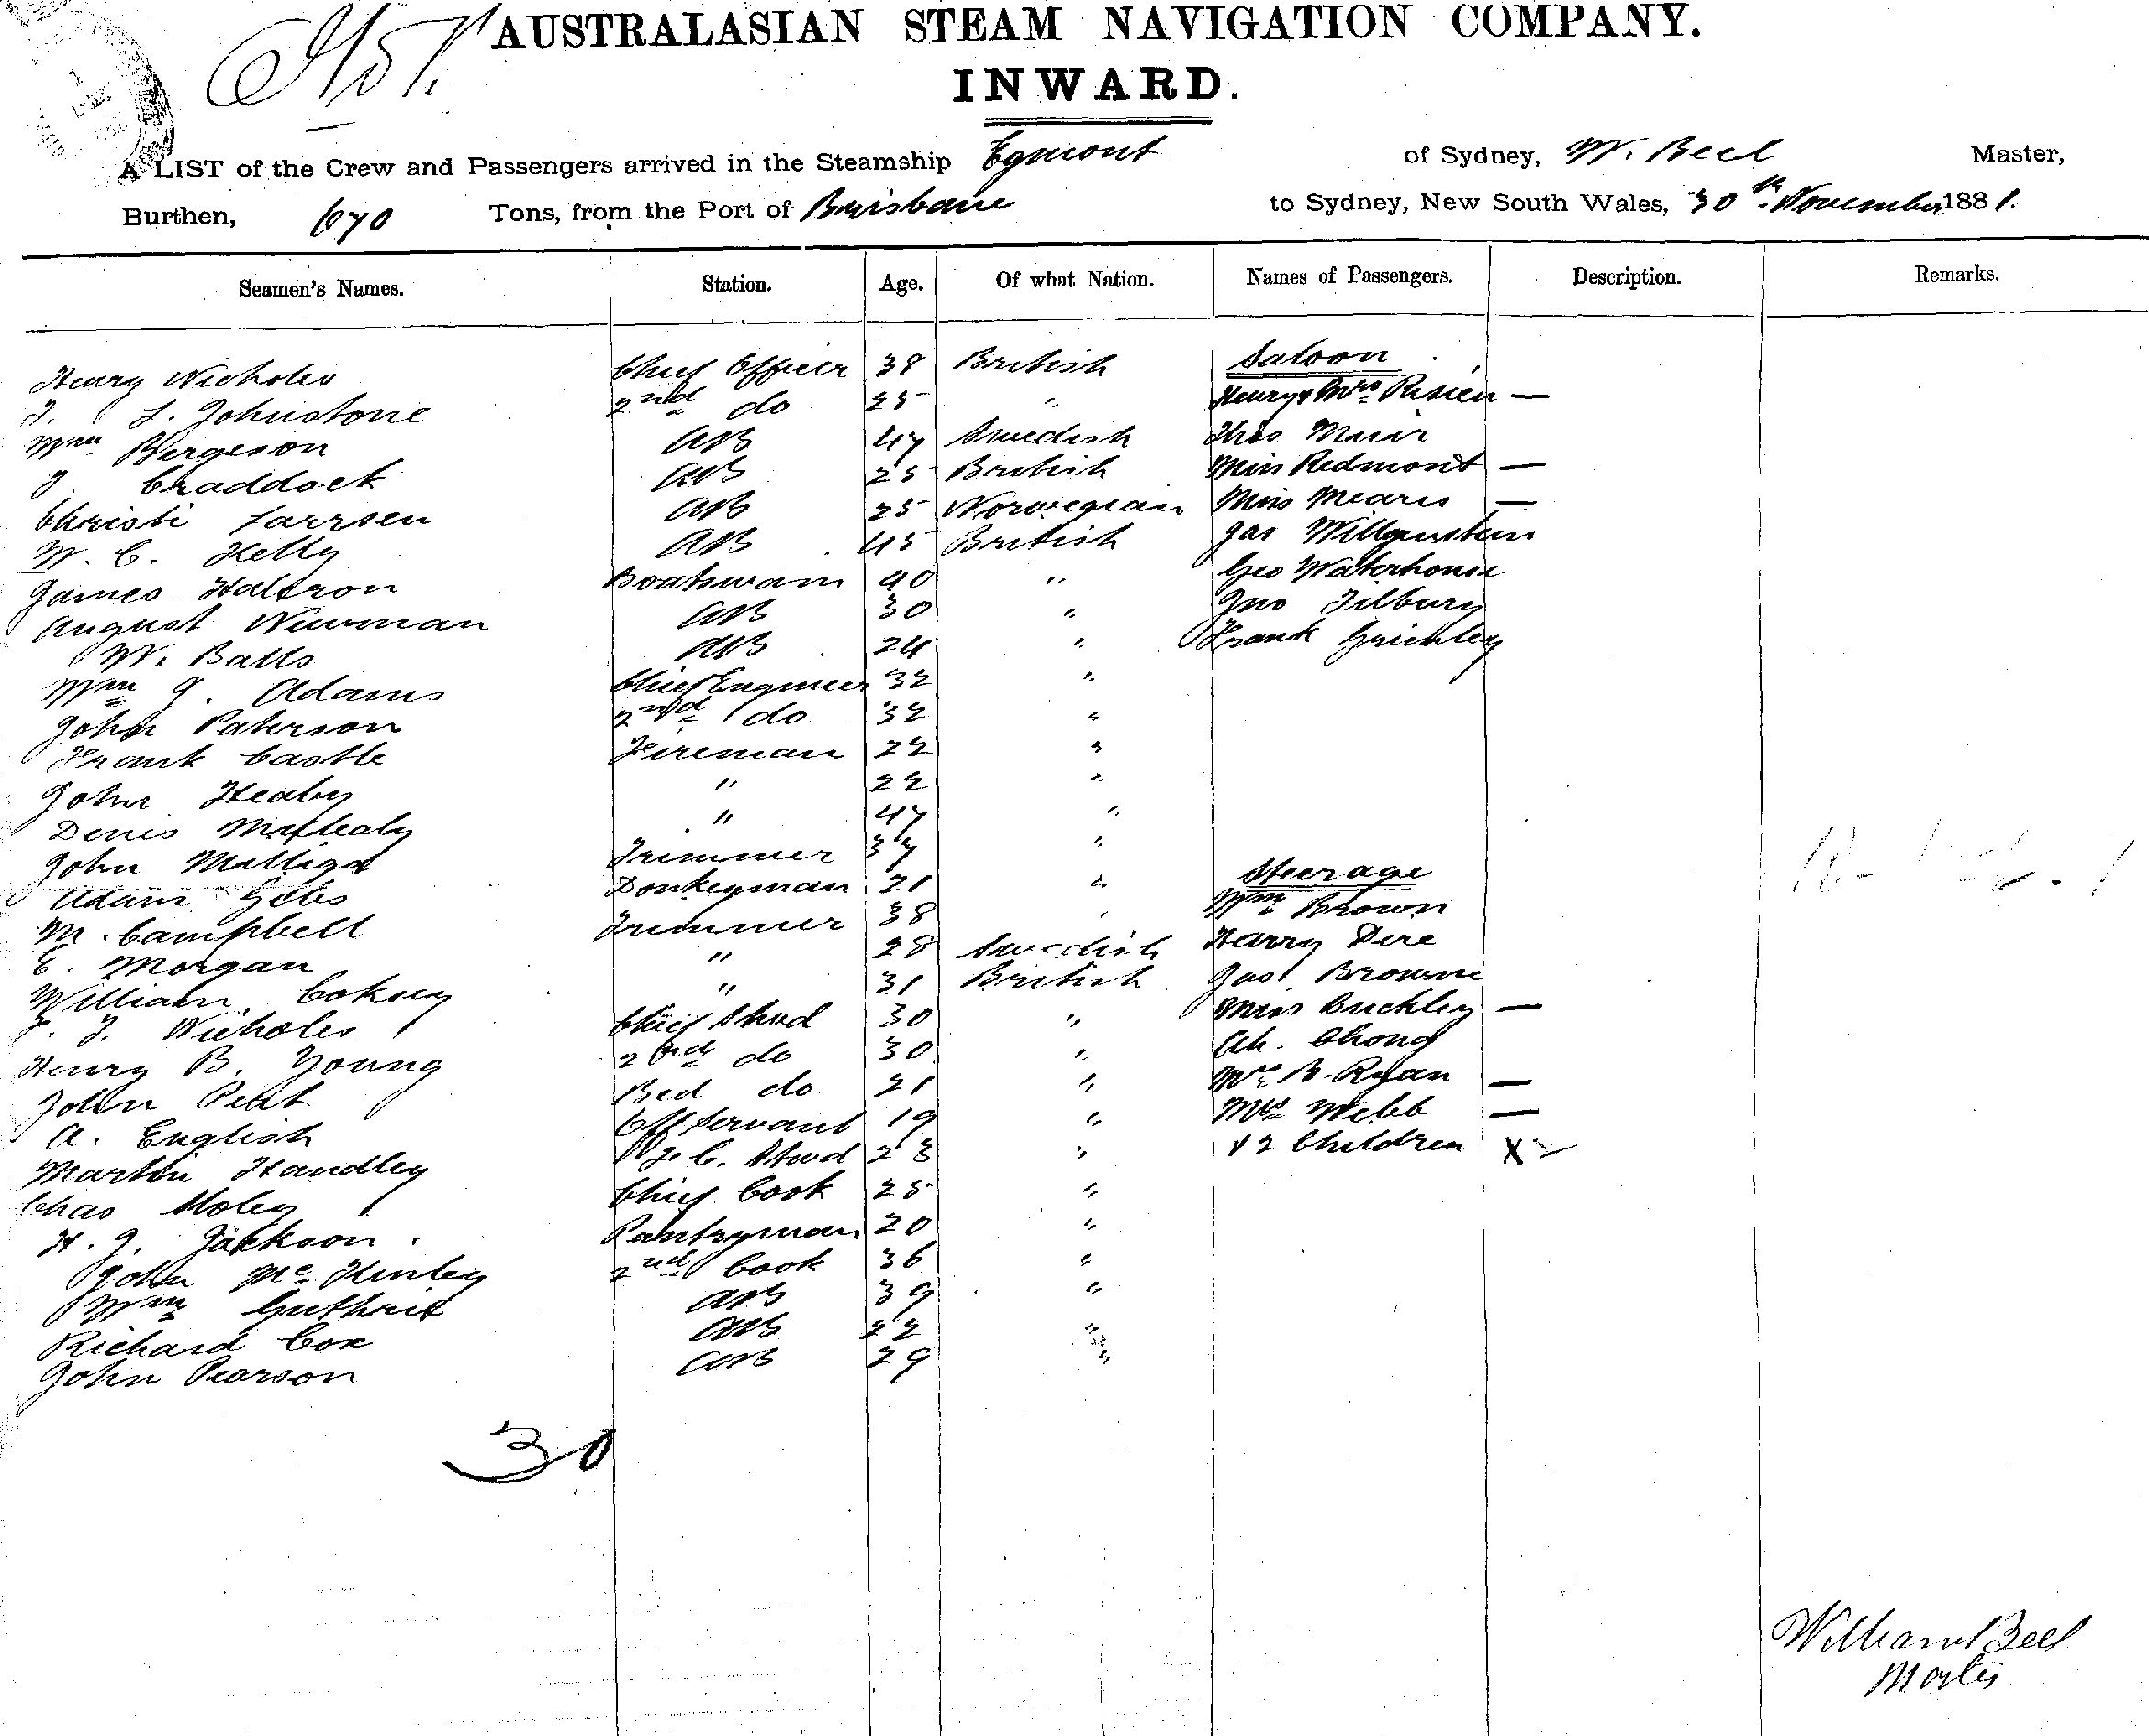 AUSTRALASIAN STEAM NAVIGATION COMPANY.
INWARD.
A LIST of the Crew and Passengers arrived in the Steamship Egmont of Sydney, W. Beel Master,
Burthen, 670 Tons, from the Port of Brisbane to Sydney, New South Wales, 30th November 1881.
Seamen's Names. Station. Age. Of what Nation. Names of Passengers. Description. Remarks.
Saloon
Henry Nicholes Chief Officer 38 British
L. Johnstone 2nd do 25 " Henry & Mrs —
Wm Bergeson AB 47 Swedish Thos Muir
J. Craddock AB 25 British Miss Redmont —
Christi Larrsen AB 25 Norwegian Miss Meares —
W. C. Kelly AB 45 British Jas
James Boatswain 40 " Geo Waterhouse
August Newman AB 30 " Jno Tilbury
W. Balls AB 24 " Frank
Wm J. Adams Chief Engineer 32 "
John Paterson 2nd do. 32 "
Frank Castle Fireman 22 "
John Healy " 22 "
Denis " 47 "
John Trimmer 37 "
Steerage
Adam Giles Donkeyman 21 " Wm Brown
M. Campbell Trimmer 38 " Harry Dere
E. Morgan " 28 Swedish Jas Browne
William Coksey " 31 British Miss Buckley —
J. Nicholes Chief Stwd 30 " Ah. Chong
Henry B. Young 2nd do 30 " Mrs B. Ryan —
John Petit Bed do 21 " Mrs Webb —
A. English Off Servant 19 " & 2 Children X
Martin Handley F. C. Stwd 23 "
Chas Moley Chief Cook 25 "
H. J. Jackson Pantryman 20 "
John McKinley 2nd Cook 36 "
Wm Guthrie AB 39 "
Richard Cox AB 22 "
John Pearson AB 29 "
30
William Beel
Master